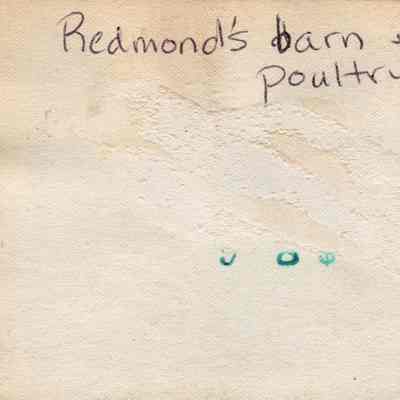 Redmond's barn
Poultry